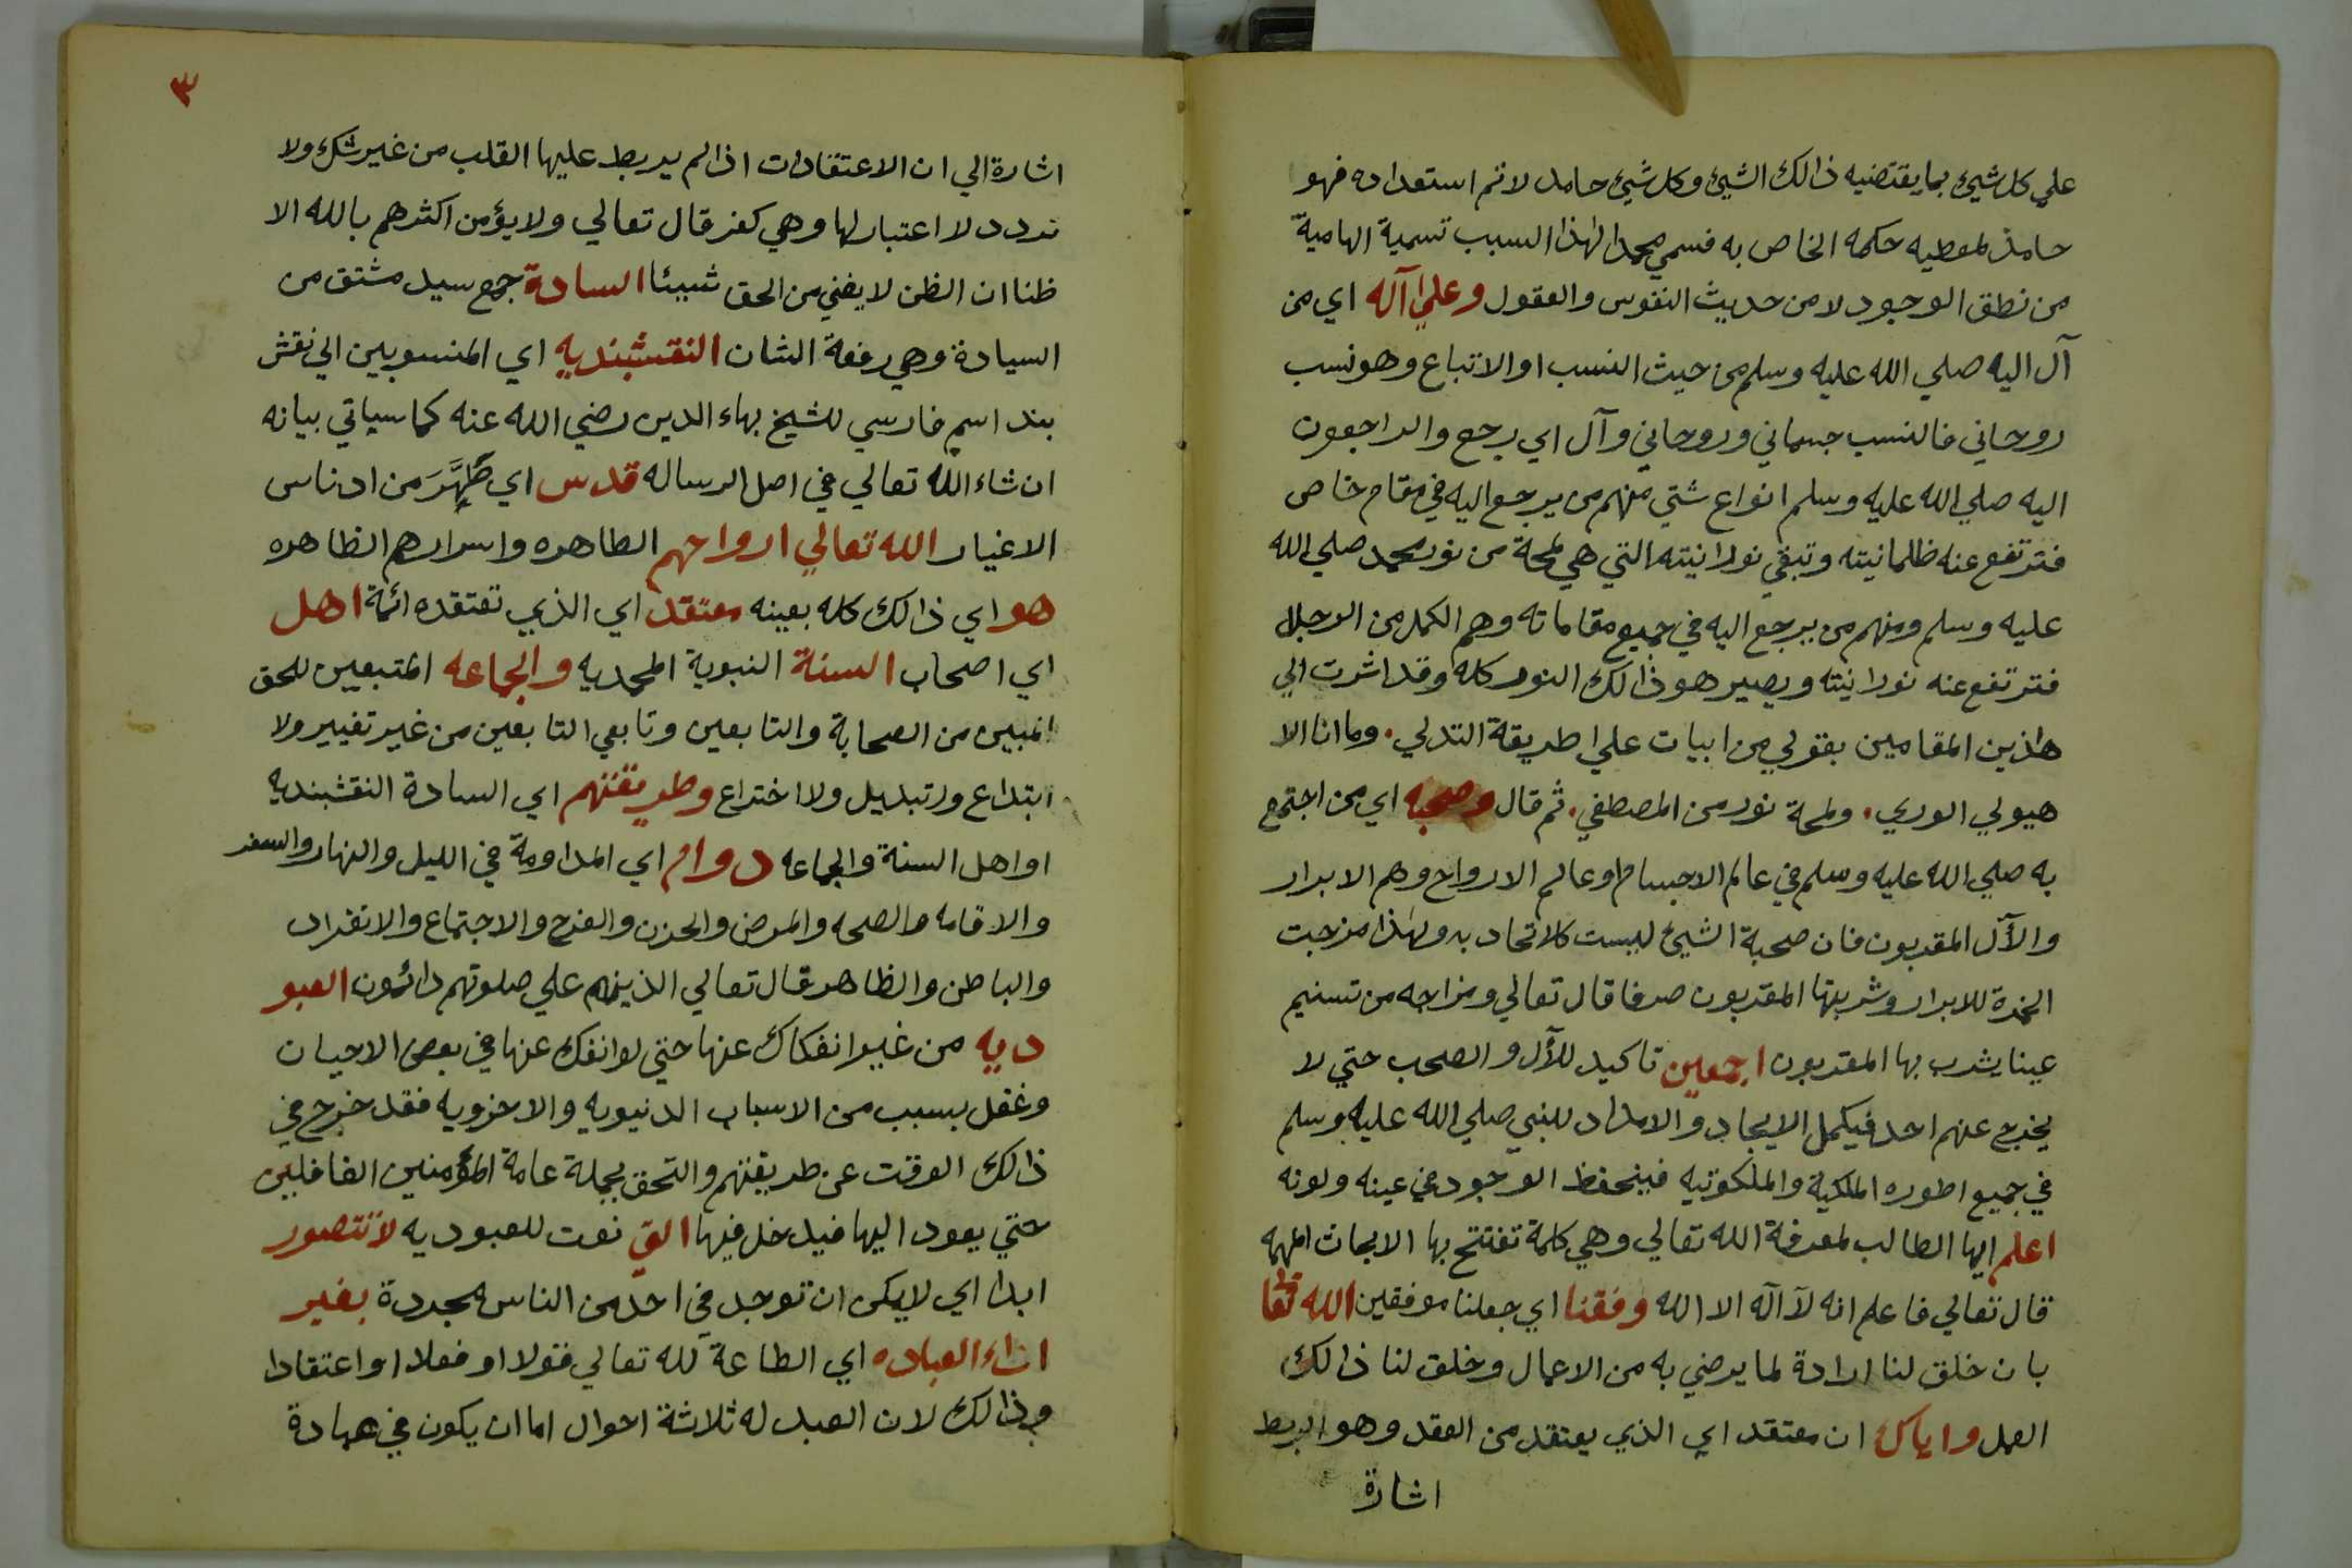 علي كل شيئ بما يقتضيه ذالك الشيئ وكل شيئ حامد لاثم استعداده فهو
حامد لمعطيه حكمه الخاص به فسمي محمدا لهذا السبب تسمية الهامية
من نطق الوجود لا من حديث النفوس والعقول وعلي آله اي من
آل اليه صلي الله عليه وسلم من حيث النسب او الاتباع وهو نسب
روحاني فالنسب جسماني وروحاني وآل اي رجع والراجعون
اليه صلي الله عليه وسلم انواع شتي منهم من يرجع اليه في مقام خاص
فترتفع عنه ظلمانيته وتبقي نورانيته التي هي لمحة من نور محمد صلي الله
عليه وسلم ومنهم من يرجع اليه في جميع مقاماته وهم الكمل من الرجال
فترتفع عنه نورانيته ويصير هو ذالك النور كله وقد اشرت الي
هذين المقامين بقولي من ابيات علي طريقة التدلي . وما انا الا
هيولي الوري . ولمحة نور من المصطفي . ثم قال وصحبه اي من اجتمع
به صلي الله عليه وسلم في عالم الاجسام او عالم الارواح وهم الابرار
والآل المقربون فان صحبة الشيئ ليست كالاتحاد به ولهذا مزجت
الخمرة للابرار وشربتها المقربون صرفا قال تعالي ومزاجه من تسنيم
عينا يشرب بها المقربون اجمعين تاكيد للآل والصحب حتي لا
يخرج عنهم احد فيكمل الايجاد والامداد للنبي صلي الله عليه وسلم
في جميع اطوره الملكية والملكوتيه فينحفظ الوجود في عينه ولونه
اعلم ايها الطالب لمعرفة الله تعالي وهي كلمة تفتتح بها الابحاث المهمه
قال تعالي فاعلم انه لآ اله الا الله وفقنا اي جعلنا موفقين الله تعا
بان خلق لنا ارادة لما يرضي به من الاعمال وخلق لنا ذالك
العمل واياك ان معتقد اي الذي يعتقد من العقد وهو الربط
اشارة
٣
اشارة الي ان الاعتقادات اذا لم يربط عليها القلب من غير شك ولا
تردد لا اعتبار لها وهي كفر قال تعالي ولا يؤمن اكثرهم بالله الا
ظنا ان الظن لا يغني من الحق شيئا السادة جمع سيد مشتق من
السيادة وهي رفعة الشان النقشبنديه اي المنسوبين الي نقش
بند اسم فارسي للشيخ بهاء الدين رضي الله عنه كما سياتي بيانه
ان شاء الله تعالي في اصل الرساله قدس اي طَهَّرَ من ادناس
الاغيار الله تعالي ارواحهم الطاهره واسرارهم الظاهره
هو اي ذالك كله بعينه معتقد اي الذي تعتقده ائمة اهل
اي اصحاب السنة النبوية المحمديه والجماعه المتبعين للحق
المبين من الصحابة والتابعين وتابعي التابعين من غير تغيير ولا
ابتداع ولا تبديل ولا اختراع وطريقتهم اي السادة النقشبنديه
او اهل السنة والجماعه دوام اي المداومة في الليل والنهار والسفر
والاقامه والصحه والمرض والحزن والفرح والاجتماع والانفراد
والباطن والظاهر قال تعالي الذينهم علي صلوتهم دائمون العبو
ديه من غير انفكاك عنها حتي لو انفك عنها في بعض الاحيان
وغفل بسبب من الاسباب الدنيويه والاخرويه فقد خرج في
ذالك الوقت عن طريقتهم والتحق بجملة عامة المؤمنين الغافلين
حتي يعود اليها فيدخل فيها التي نعت للعبوديه لا تتصور
ابدا اي لا يمكن ان توجد في احد من الناس مجردة بغير
اداء العباده اي الطاعة لله تعالي قولا او فعلا او اعتقادا
وذالك لان العبد له ثلاثة احوال اما ان يكون في عبادة